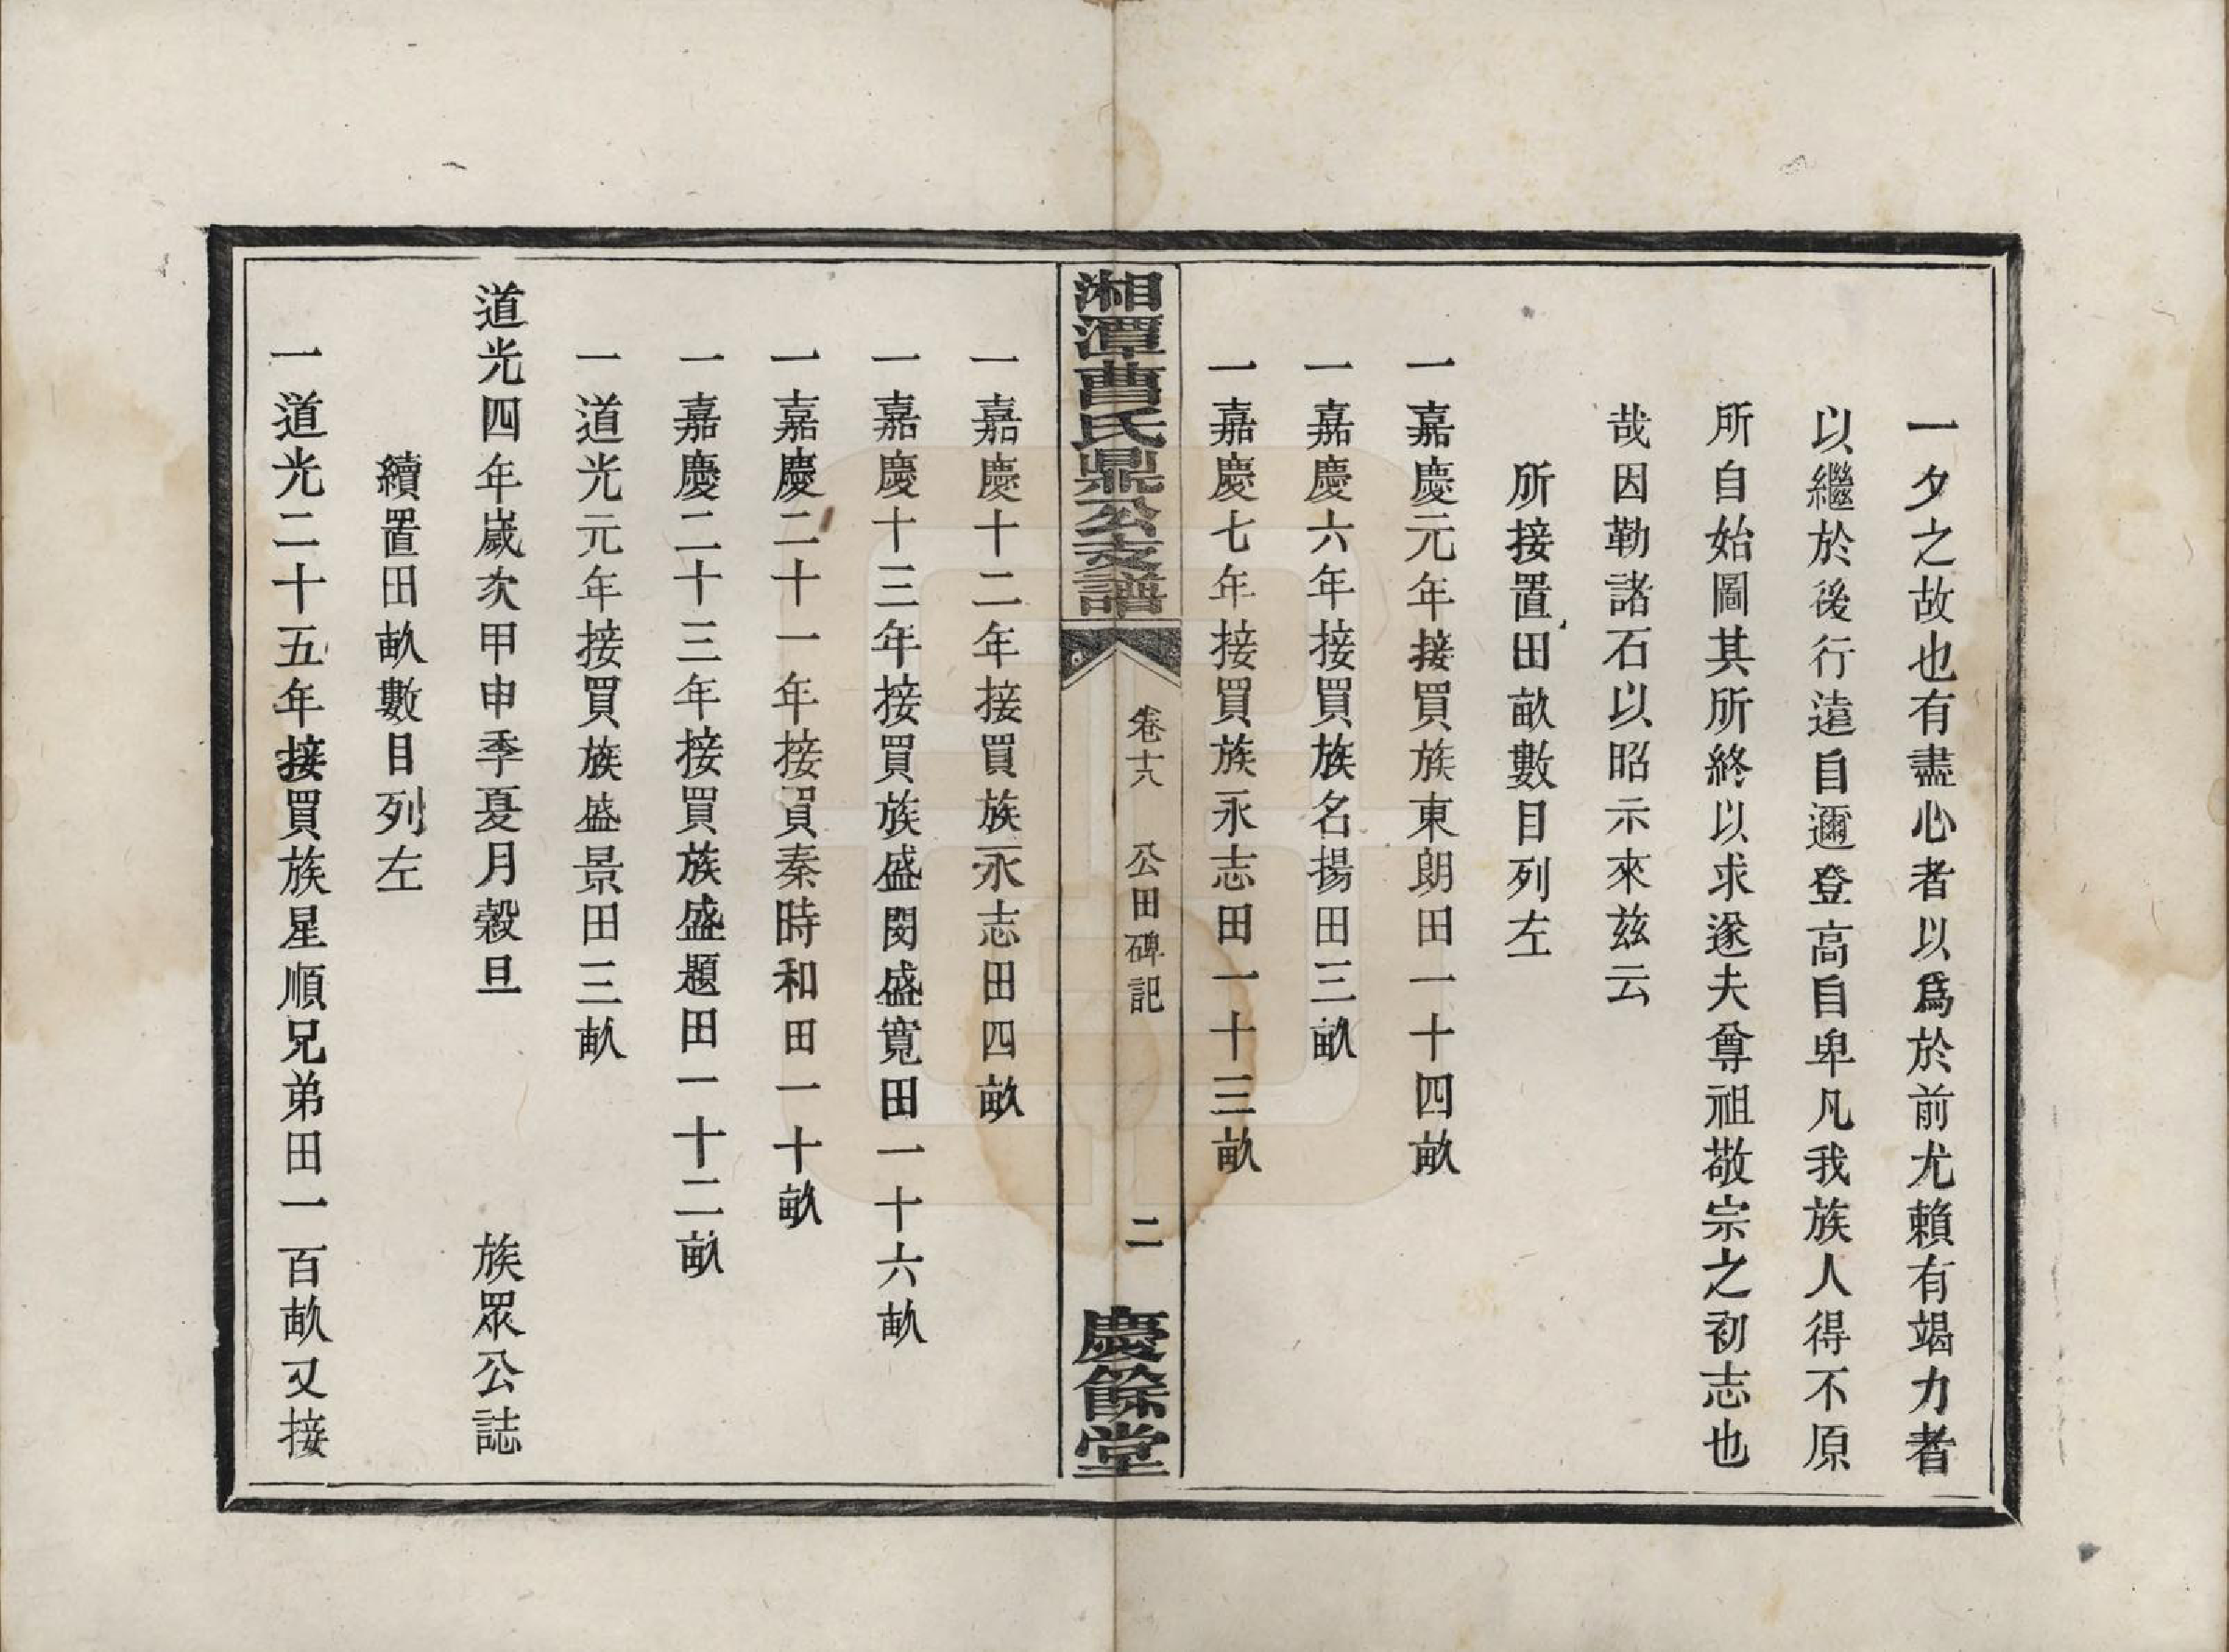 一夕之故也有盡心者以爲於前尤賴有竭力者
以繼於後行遠自邇登高自卑凡我族人得不原
所自始圖其所終以求遂夫尊祖敬宗之初志也
哉因勒諸石以昭示來兹云
所接置田畝數目列左
一嘉慶元年接買族東朗田一十四畝
一嘉慶六年接買族名揚田三畝
一嘉慶七年接買族永志田一十三畝
湘潭曹氏鼎公支譜
卷十八
公田碑記
二
慶餘堂
一嘉慶十二年接買族永志田四畝
一嘉慶十三年接買族盛閔盛寬田一十六畝
一嘉慶二十一年接買秦時和田一十畝
一嘉慶二十三年接買族盛題田一十二畝
一道光元年接買族盛景田三畝
道光四年歲次甲申季夏月穀旦 族眾公誌
續置田畝數目列左
一道光二十五年接買族星順兄弟田一百畝又接